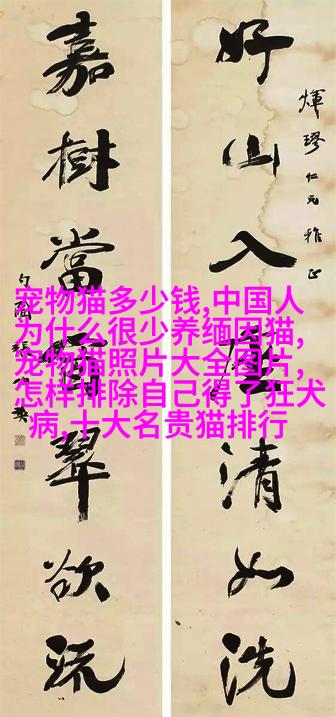 煇璆仁兄雅正
好山入座清如洗
嘉樹當窗翠欲流
宠物猫多少钱,中国人
为什么很少养缅因猫,
宠物猫照片大全图片,
怎样排除自己得了狂犬
病,十大名贵猫排行